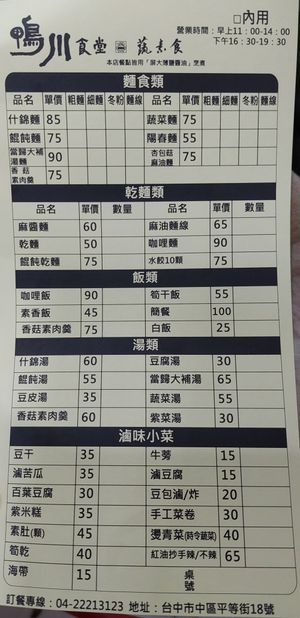 □內用
鴨川食堂 蔬素食
營業時間：早上11：00-14：00
下午16：30-19：30
本店餐點皆用「屏大薄鹽醬油」烹煮
麵食類
品名 單價 粗麵 細麵 冬粉 麵線 品名 單價 粗麵 細麵 冬粉 麵線
什錦麵 85 蔬菜麵 75
餛飩麵 75 陽春麵 55
當歸大補湯麵 90 杏包菇麻油麵 75
香菇素肉羹 75
乾麵類
品名 單價 數量 品名 單價 數量
麻醬麵 60 麻油麵線 65
乾麵 50 咖哩麵 90
餛飩乾麵 75 水餃10顆 75
飯類
咖哩飯 90 筍干飯 55
素香飯 45 簡餐 100
香菇素肉羹 75 白飯 25
湯類
什錦湯 60 豆腐湯 30
餛飩湯 55 當歸大補湯 65
豆皮湯 35 蔬菜湯 55
香菇素肉羹 60 紫菜湯 30
滷味小菜
豆干 35 牛蒡 15
滷苦瓜 35 滷豆腐 15
百葉豆腐 30 豆包滷/炸 20
紫米糕 35 手工菜卷 30
素肚(顆) 45 燙青菜(時令蔬菜) 40
筍乾 40 紅油抄手辣/不辣 65
海帶 15 桌號
訂餐專線：04-22213123 地址：台中市中區平等街18號